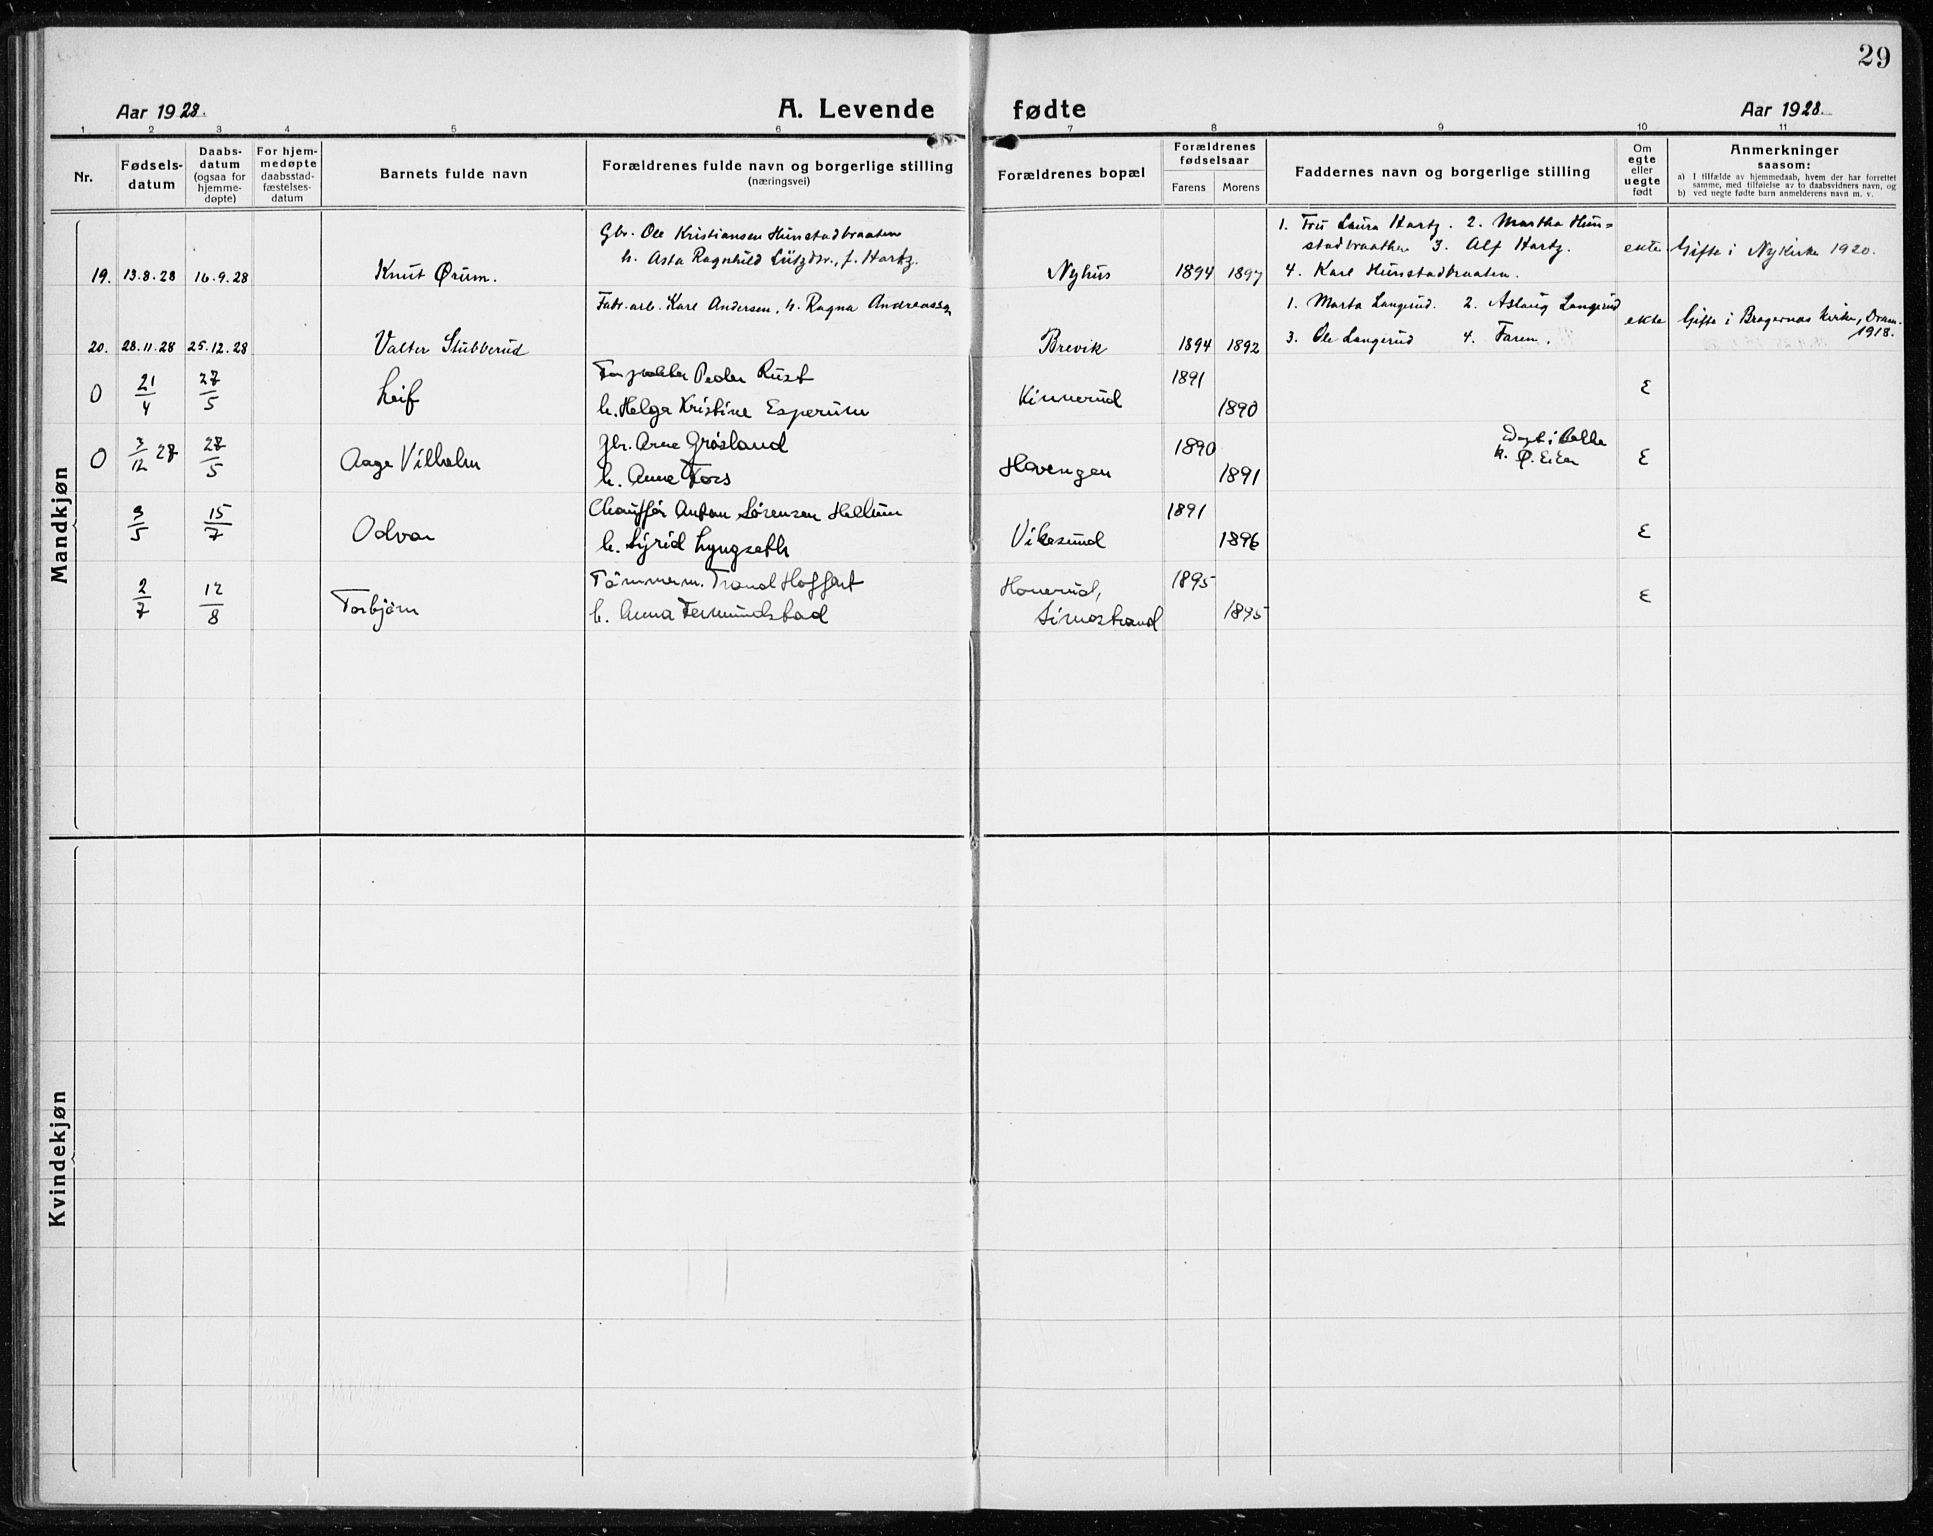 29
Aar 1928.
A. Levende fødte
Aar 1928.
1 2 3 4 5 6 7 8 9 10 11
Nr.
Fødsels-
datum
Daabs-
datum
(ogsaa for
hjemme-
døpte)
For hjem-
medøpte
daabsstad-
fæstelses-
datum
Barnets fulde navn
Forældrenes fulde navn og borgerlige stilling
(næringsvei)
Forældrenes bopæl
Forældrenes
fødselsaar
Farens Morens
Faddernes navn og borgerlige stilling
Om
egte
eller
uegte
født
Anmerkninger
saasom:
a) I tilfælde av hjemmedaab, hvem der har forrettet
samme, med tilføielse av to daabsvidners navn, og
b) ved uegte fødte barn anmelderens navn m. v.
Mandkjøn
Gbr. Ole Kristiansen Hunstadbraaten
h. Asta Ragnhild f. Hartz.
19. 13.8.28 16.9.28 Knut Ørum. Nyhus 1894 1897
1. Fru Laura Hartz. 2. Martha Hun=
stadbraathen 3. Alf Hartz.
4. Karl Hunstadbraaten.
ekte Gifte i Nykirke 1920.
Fabr.arb. Karl Andersen, h. Ragna Andreassen
20. 28.11.28 25.12.28 Valter Stubberud Brevik 1894 1892
1. Marta Langerud. 2. Aslaug Langerud
3. Ole Langerud 4. Faren.
ekte Gifte i Bragernas kirke, Dram.
1918.
0 21/4 27/5 Leif
Peder Rust
h. Helga Kristine Esperum
Kinnerud 1891 1890 E
0 3/12 27 28/5 Aage Vilhelm
Gbr. Arne Grøsland
h. Anna Fors
Hovengen 1890 1891
Døpt i
k. Ø. Eiker
E
9/5 15/7 Odvar
Chauffør Anton Sørensen Hellum
h. Sigrid Lyngseth
Vikesund 1891 1896 E
2/7 12/8 Torbjørn
Tømmerm. Trond Hoffart
h. Anna Fermundstad
Honerud,
Simostrand
1895 1895 E
Kvindekjøn